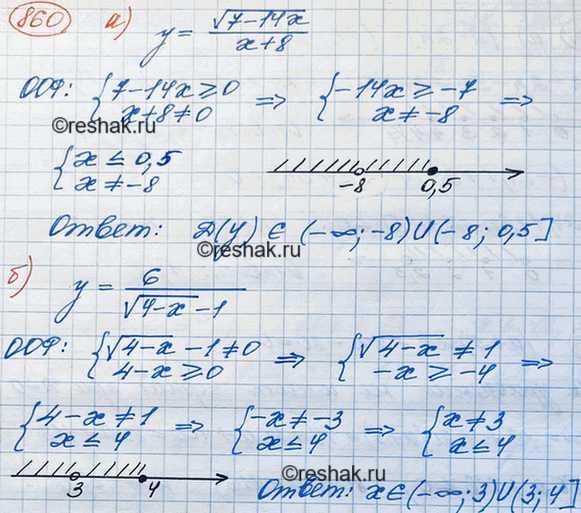 860 а) y = √(7-14x) / (x+8)
ООФ: { 7-14x ≥ 0 ; x+8 ≠ 0 ⇒ { -14x ≥ -7 ; x ≠ -8 ⇒
©reshak.ru
{ x ≤ 0,5 ; x ≠ -8
-8 0,5
Ответ: D(y) ∈ (-∞; -8) U (-8; 0,5]
©reshak.ru
б) y = 6 / (√(4-x) - 1)
ООФ: { √(4-x) - 1 ≠ 0 ; 4-x ≥ 0 ⇒ { √(4-x) ≠ 1 ; -x ≥ -4 ⇒
{ 4-x ≠ 1 ; x ≤ 4 ⇒ { -x ≠ -3 ; x ≤ 4 ⇒ { x ≠ 3 ; x ≤ 4
3 4
©reshak.ru
Ответ: x ∈ (-∞; 3) U (3; 4]